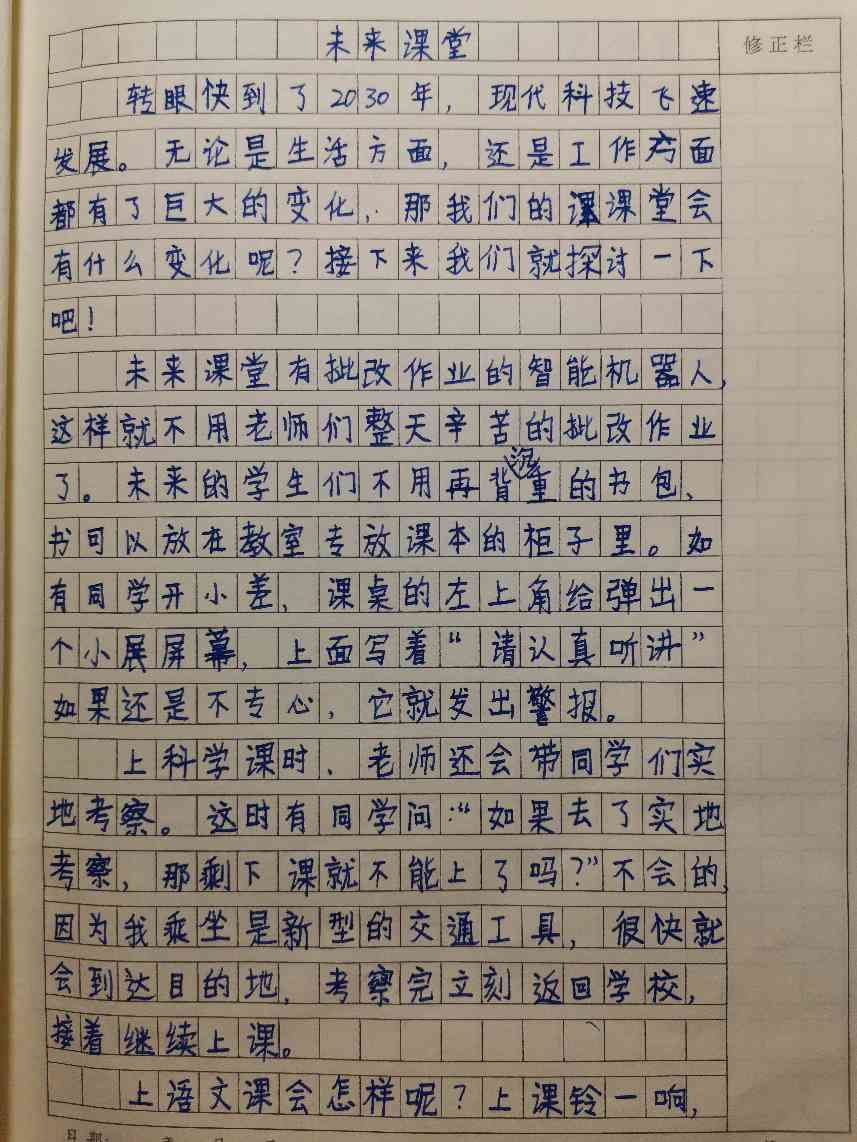 未来课堂
修正栏
转眼快到了2030年，现代科技飞速
发展。无论是生活方面，还是工作方面
都有了巨大的变化，那我们的课课堂会
有什么变化呢？接下来我们就探讨一下
吧！
未来课堂有批改作业的智能机器人，
这样就不用老师们整天辛苦的批改作业
了。未来的学生们不用再背沉重的书包、
书可以放在教室专放课本的柜子里。如
有同学开小差、课桌的左上角给弹出一
个小展屏幕，上面写着“请认真听讲”
如果还是不专心，它就发出警报。
上科学课时、老师还会带同学们实
地考察。这时有同学问：“如果去了实地
考察，那剩下课就不能上了吗？”不会的，
因为我乘坐是新型的交通工具，很快就
会到达目的地、考察完立刻返回学校，
接着继续上课。
上语文课会怎样呢？上课铃一响，